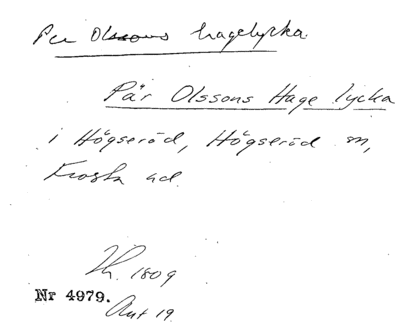 Per Olssons hagelycka
Pär Olssons Hage lycka
i Högseröd, Högseröd sn,
Frosta hd.
Th. 1809
Nr 4979.
Akt 19